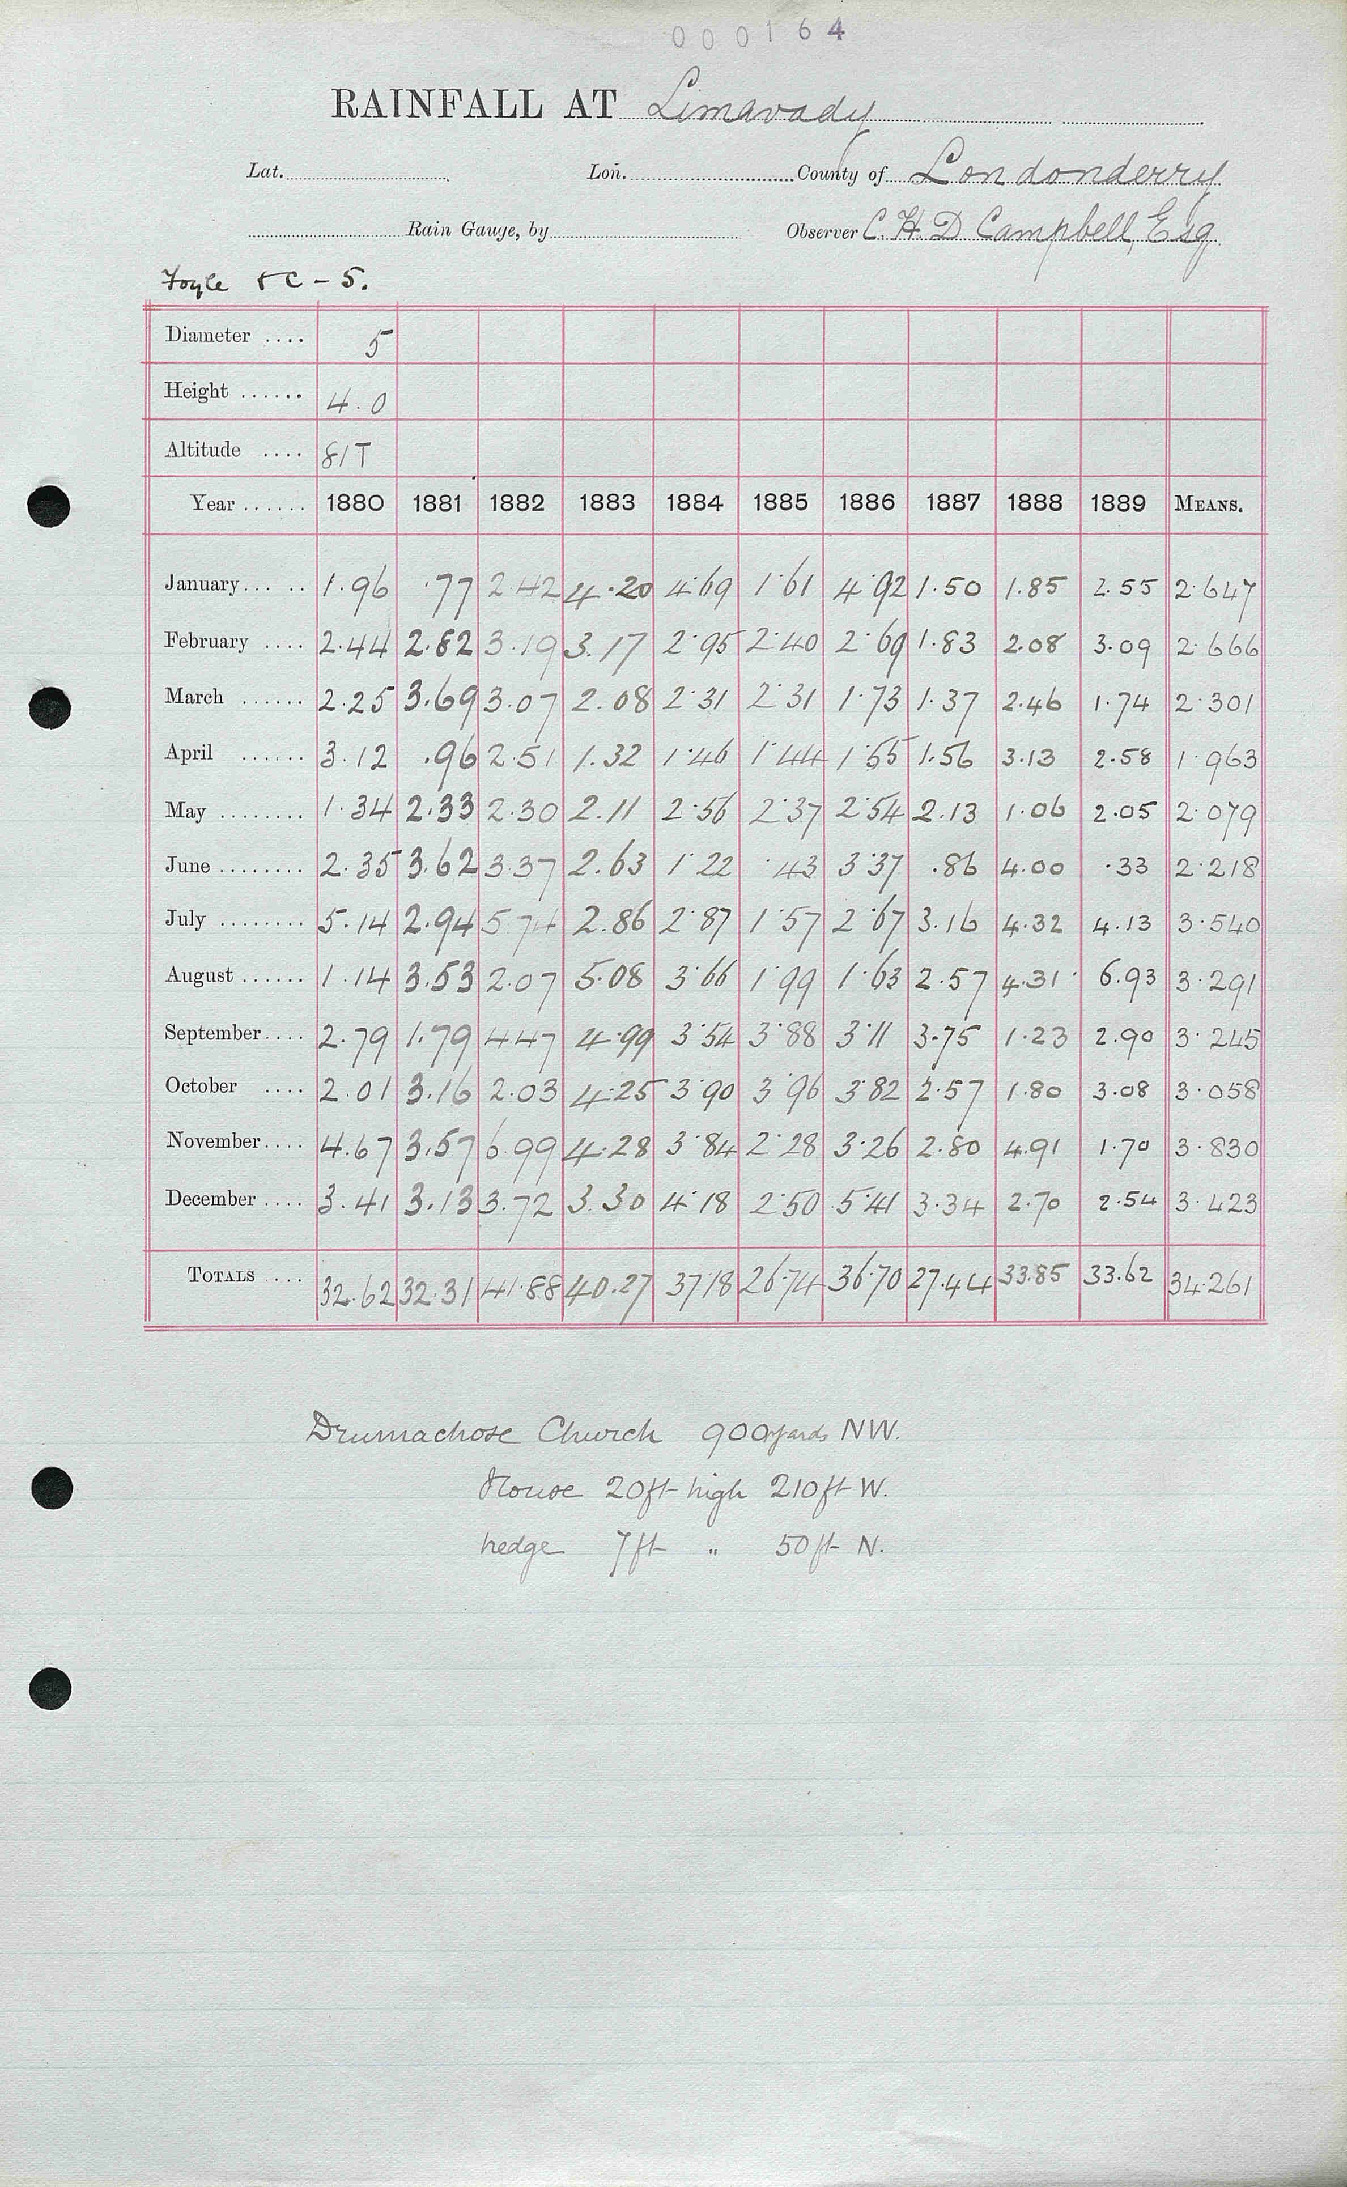 000164
RAINFALL AT Limavady
Lat. Lon. County of Londonderry
Rain Gauge, by Observer C. H. D Campbell, Esq
Foyle & C - 5.
Diameter .... 5
Height ...... 4.0
Altitude .... 81T
Year ...... 1880 1881 1882 1883 1884 1885 1886 1887 1888 1889 MEANS.
January... .. 1.96 .77 2.42 4.20 4.69 1.61 4.92 1.50 1.85 2.55 2.647
February .... 2.44 2.82 3.19 3.17 2.95 2.40 2.69 1.83 2.08 3.09 2.666
March ...... 2.25 3.69 3.07 2.08 2.31 2.31 1.73 1.37 2.46 1.74 2.301
April ...... 3.12 .96 2.51 1.32 1.46 1.44 1.55 1.56 3.13 2.58 1.963
May ........ 1.34 2.33 2.30 2.11 2.56 2.37 2.54 2.13 1.06 2.05 2.079
June ........ 2.35 3.62 3.37 2.63 1.22 .43 3.37 .86 4.00 .33 2.218
July ........ 5.14 2.94 5.74 2.86 2.87 1.57 2.67 3.16 4.32 4.13 3.540
August ...... 1.14 3.53 2.07 5.08 3.66 1.99 1.63 2.57 4.31 6.93 3.291
September.... 2.79 1.79 4.47 4.99 3.54 3.88 3.11 3.75 1.23 2.90 3.245
October .... 2.01 3.16 2.03 4.25 3.90 3.96 3.82 2.57 1.80 3.08 3.058
November.... 4.67 3.57 6.99 4.28 3.84 2.28 3.26 2.80 4.91 1.70 3.830
December .... 3.41 3.13 3.72 3.30 4.18 2.50 5.41 3.34 2.70 2.54 3.423
TOTALS .... 32.62 32.31 41.88 40.27 37.18 26.74 36.70 27.44 33.85 33.62 34.261
Drumachose Church 900 yards NW.
House 20ft high 210ft W.
hedge 7ft " 50ft N.